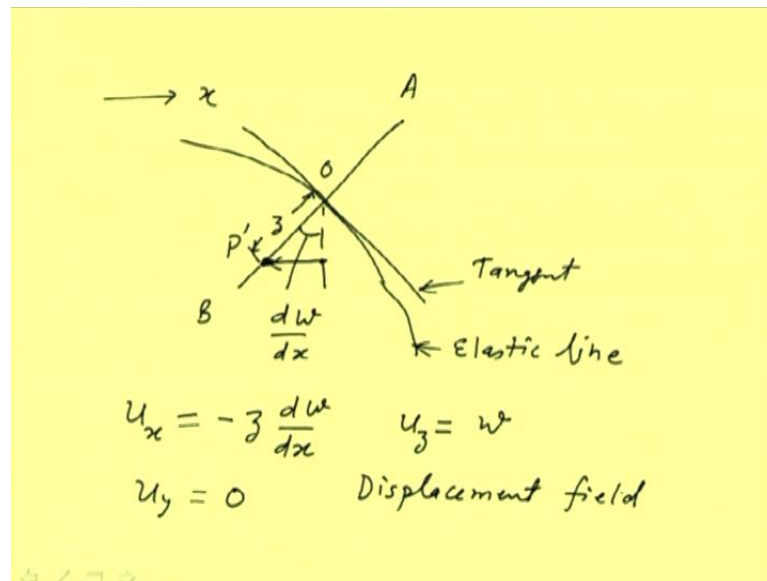 x
A
O
z
P'
Tangent
B
dw
dx
Elastic line
u_x = -z dw/dx   u_z = w
u_y = 0   Displacement field